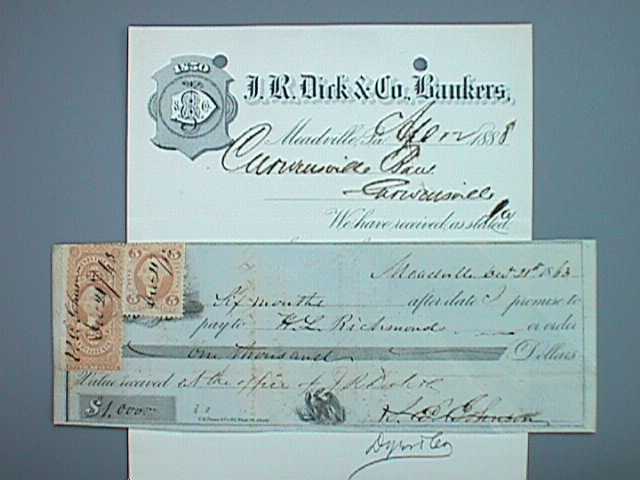 1850
J. R. Dick & Co., Bankers,
Meadville, Pa. 1888
Curwensville Bank
Curwensville
Pa
We have received, as stated,
Meadville Oct 21st 1863
Six months after date I promise to
pay to H. L. Richmond or order
one thousand Dollars
Value received at the office of J R Dick & Co
$1,000
Johnson
5 5